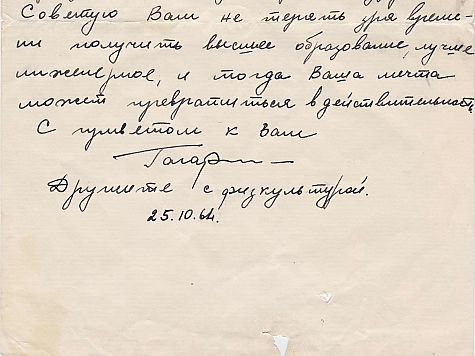 Советую Вам не терять зря време-
ни получить высшее образование, лучше
инженерное, и тогда Ваша мечта
может превратиться в действительность
С приветом к Вам
Гагарин
Дружите с физкультурой.
25.10.64.